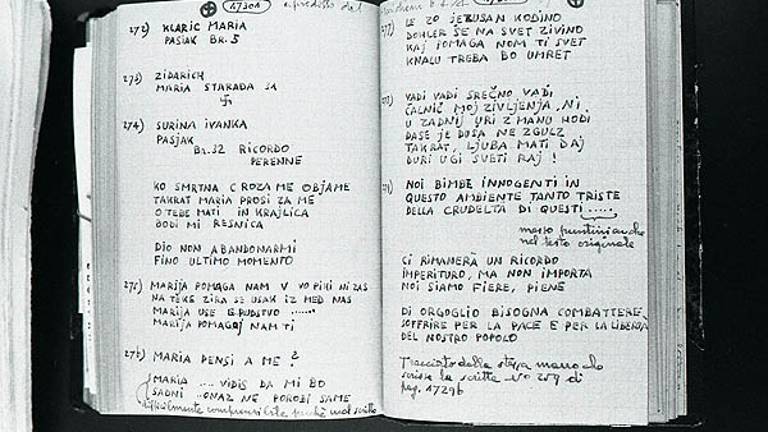 272) KLARIC MARIA
PASIAK BR. 5
273) ZIDARICH
MARIA STARADA 34
274) SURINA IVANKA
PASJAK
BR. 32 RICORDO
PERENNE
KO SMRTNA GROZA ME OBJAME
TAKRAT MARIA PROSI ZA ME
O TEBE MATI IN KRAJLICA
BODI MI RESNICA
DIO NON ABANDONARMI
FINO ULTIMO MOMENTO
275) MARIJA POMAGA NAM V
NA TEKE ZIRA SE USAK IZ MED NAS
MARIJA USE
MARIJA POMAGAJ NAM TI
276) MARIA PENSI A ME ?
MARIA .... VIDIS DA MI BO
SADNI ..ONAZ NE POROBI SAME
difficilmente comprensibile perché mal scritto
47301
277) LE ZO JEZUSAN HODINO
DOKLER SE NA SVET ZIVINO
KAJ POMAGA NOM TI SVET
KNALU TREBA BO UMRET
VADI VADI SREČNO VADI
ČALNIČ MOJ ZIVLJENJA, NI
U ZADNJ URI Z MANO HODI
DASE JE DUŠA NE ZGULZ
TAKRAT, LJUBA MATI DAJ
DURI UGI SVETI RAJ !
NOI BIMBE INNOGENTI IN
QUESTO AMBIENTE TANTO TRISTE
DELLA CRUDELTA DI QUESTI.....
nel testo originale
CI RIMANERÀ UN RICORDO
IMPERITURO, MA NON IMPORTA
NOI SIAMO FIERE, PIENE
DI ORGOGLIO BISOGNA COMBATTERE,
SOFFRIRE PER LA PACE E PER LA LIBERTÀ
DEL NOSTRO POPOLO
Tracciato dalla stessa mano che
scrisse la scritta No 259 di
pag. 47296